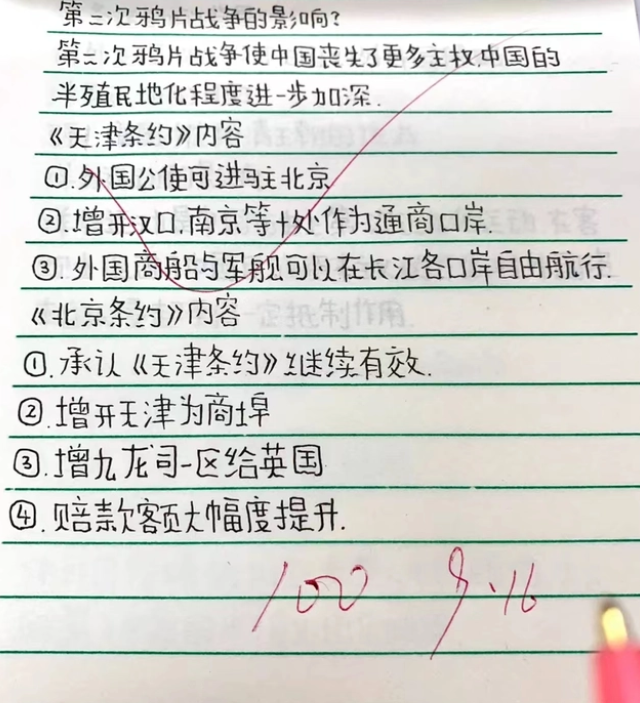 第二次鸦片战争的影响?
第二次鸦片战争使中国丧失了更多主权.中国的
半殖民地化程度进一步加深.
《天津条约》内容
①.外国公使可进驻北京
②增开汉口南京等十处作为通商口岸
③.外国商船与军舰可以在长江各口岸自由航行.
《北京条约》内容
①.承认《天津条约》继续有效.
②.增开天津为商埠
③.增九龙司一区给英国
④.赔款额大幅度提升.
100 9.16